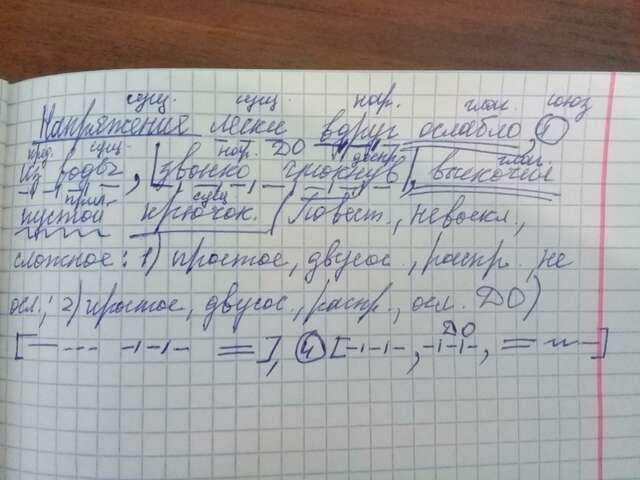 сущ. сущ. нар. глаг. союз
Напряжения лески вдруг ослабло, и
пред. сущ. нар. ДО деепр. глаг.
из воды, звонко чмокнув, выскочил
прил. сущ
пустой крючок. (Повест., невоскл.,
сложное: 1) простое, двусос., распр., не
осл.; 2) простое, двусос., распр., осл. ДО)
[ ], и [ , ДО, ]